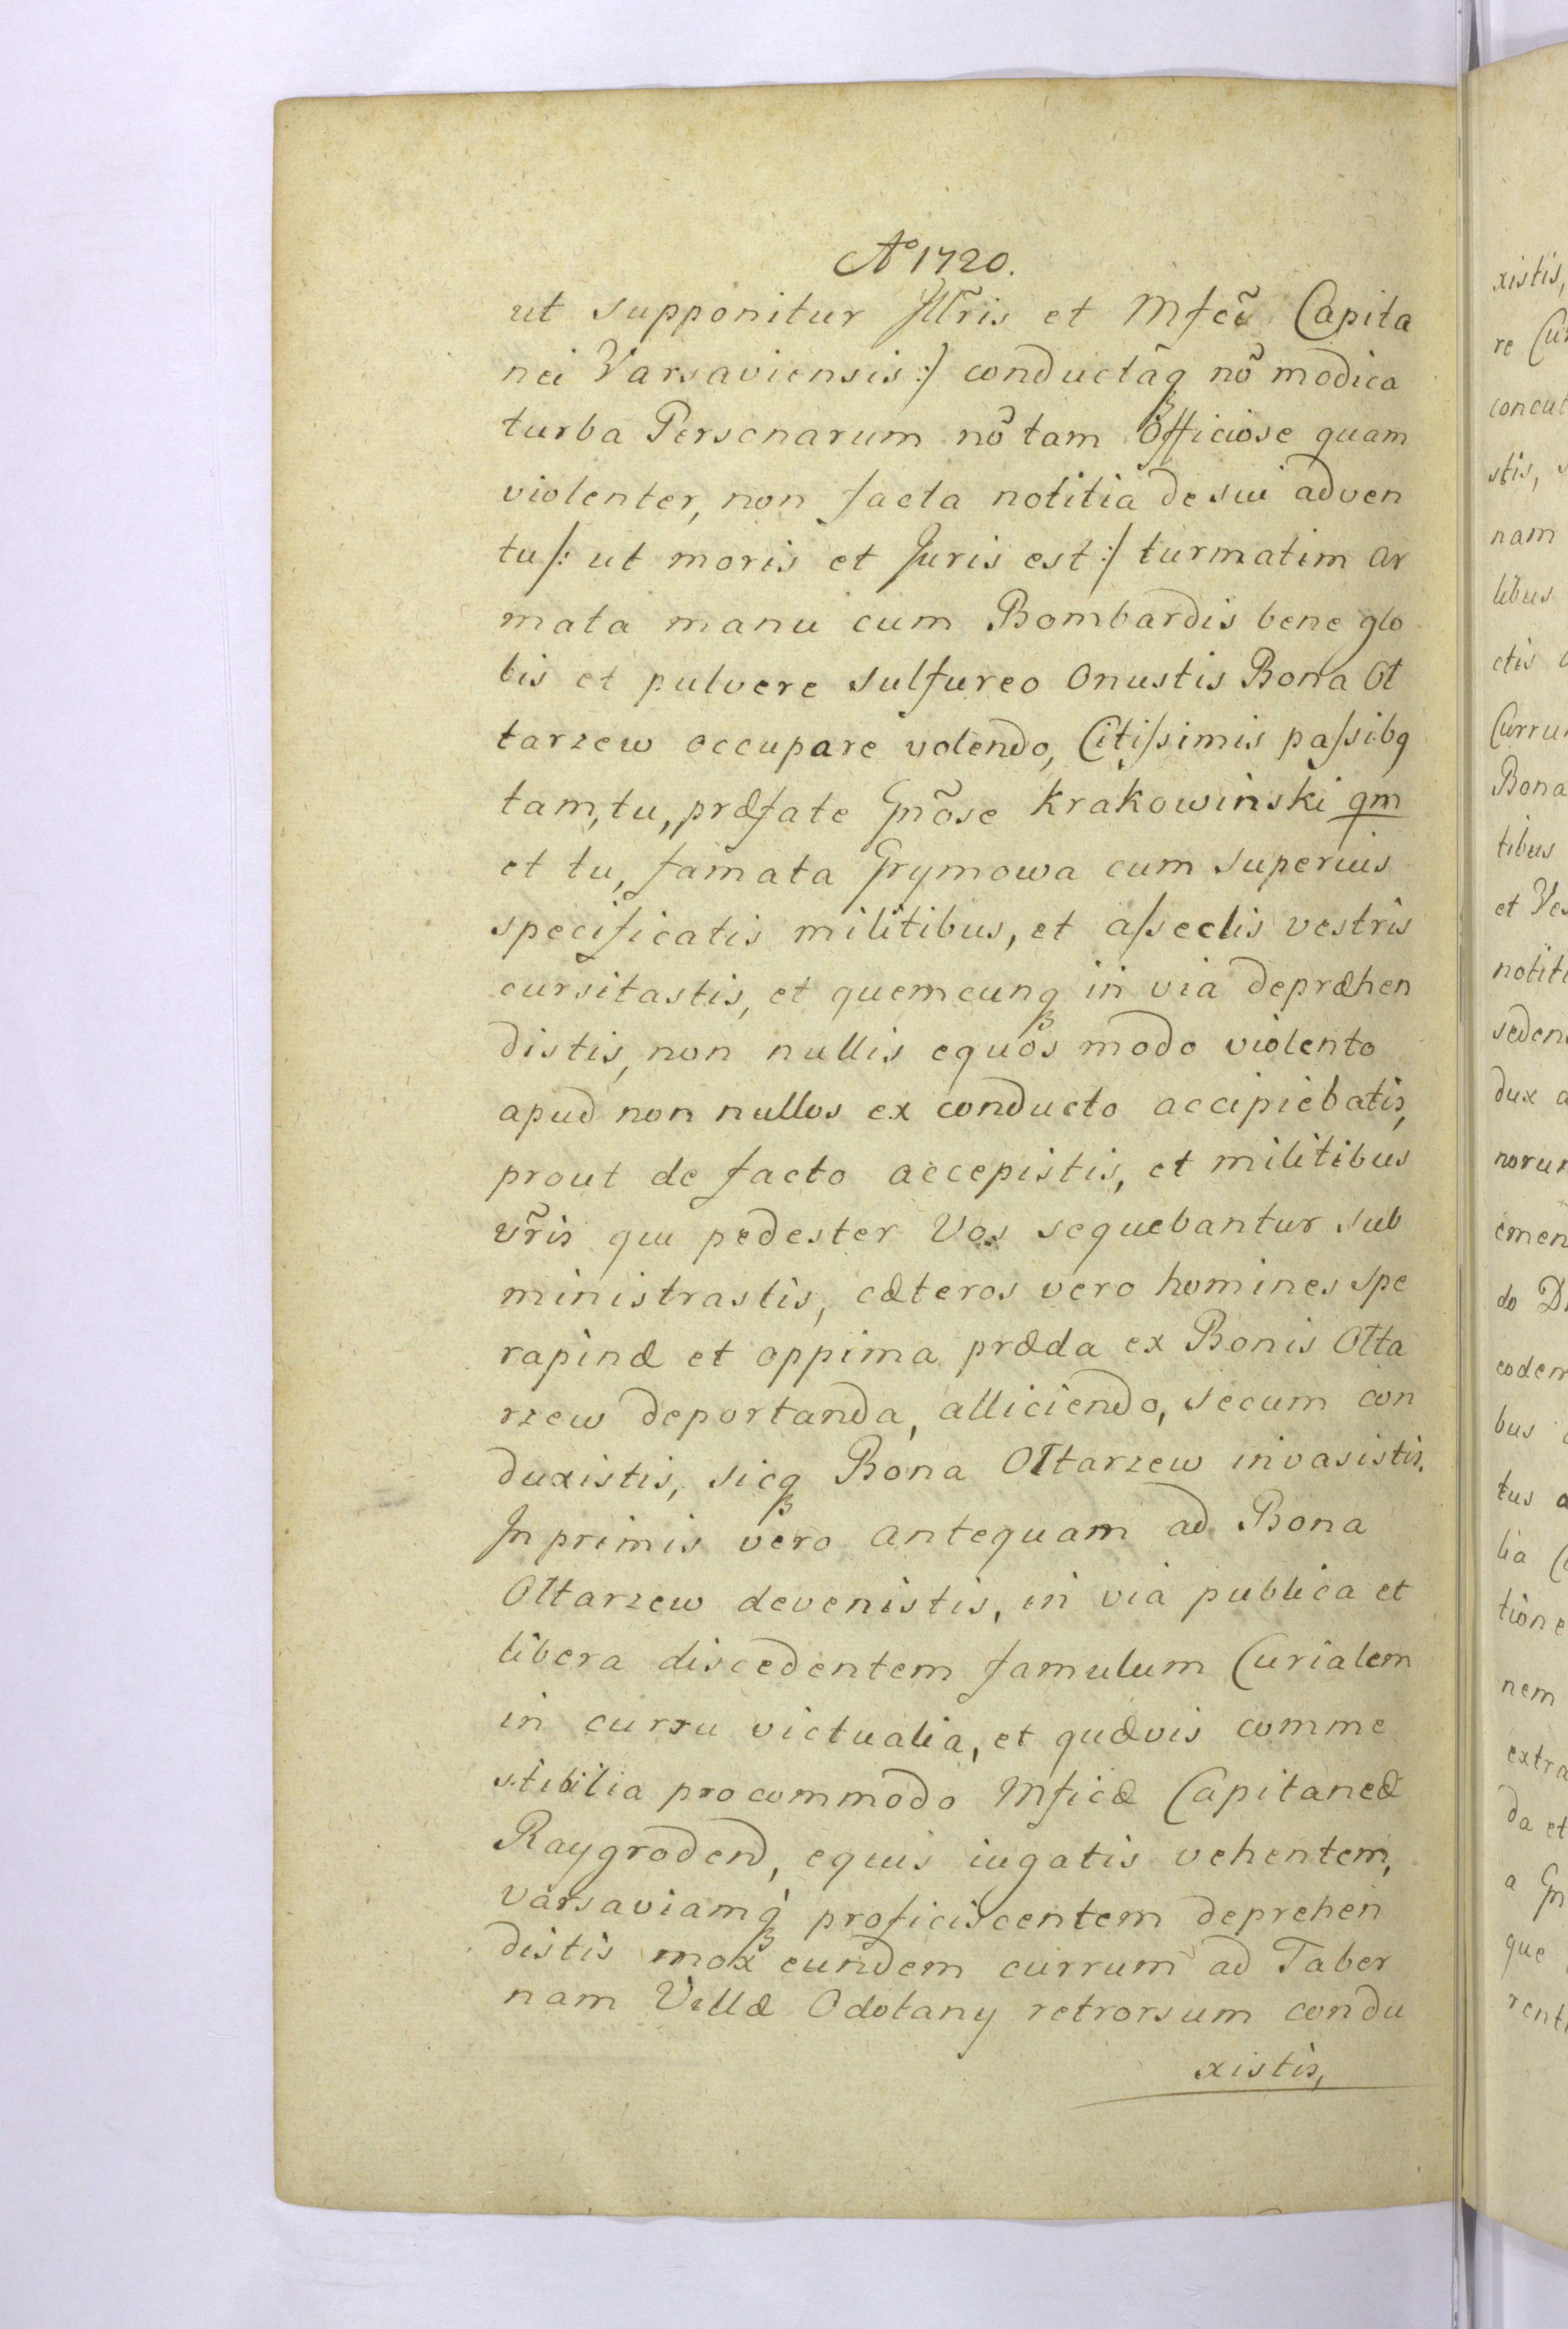 Aº 1720.
ut supponitur Jllr̃is et Mfcĩ Capita
nei Varsaviensis :/ conductãq nõ modica
turba Personarum nõ tam Officiose quam
violenter, non facta notitia de sui adven
tu /: ut moris et Juris est :/ turmatim ar
mata manu cum Bombardis bene glo
bis et pulvere sulfureo onustis Bona Ot
tarzew occupare volendo, Citiſsimis paſsibq
tam, tu, præfate Gnõse Krakowinski qm
et tu, famata Grymowa cum superius
specificatis militibus, et aſseclis vestris
cursitastis, et quemcunqꝫ in via depræhen
distis, non nullis equos modo violento
apud non nullos ex conducto accipiebatis,
prout de facto accepistis, et militibus
vr̃is qui pedester Vos sequebantur sub
ministrastis, cæteros vero homines spe
rapinæ et oppima præda ex Bonis Otta
rzew deportanda, alliciendo, secum con
duxistis, sicqꝫ Bona Ottarzew invasistis.
Jn primis vero antequam ad Bona
Ottarzew devenistis, in via publica et
libera discedentem famulum Curialem
in curru victualia, et quævis comme
stibilia pro commodo Mficæ Capitaneæ
Raygrodend, equis iugatis vehentem,
varsaviamqꝫ proficiscentem deprehen
distis mox eundem currum ad Taber
nam Villæ Odolany retrorsum condu
xistis,
xistis,
re
concut
stis,
nam
libus
ctis
Curru
Bona
tibus
et Ves
notiti
seden
dux a
norum
emen
do
eodem
bus
tus a
lia
tione
nem
extra
da et
a Gn
que
renti